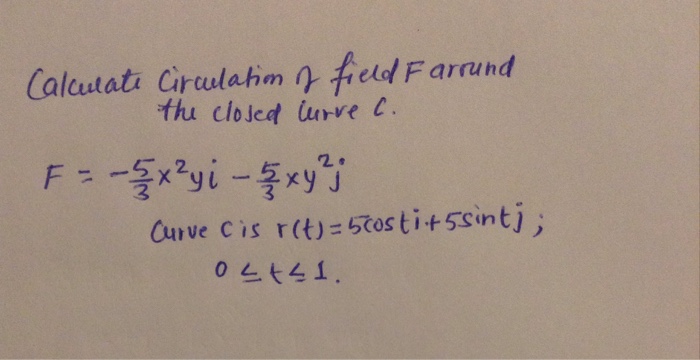 Calculate Circulation of field F arround
the closed Curve C.
F = -5/3 x²yi - 5/3 xy²j
Curve C is r(t) = 5costi + 5sintj ;
0 ≤ t ≤ 1.